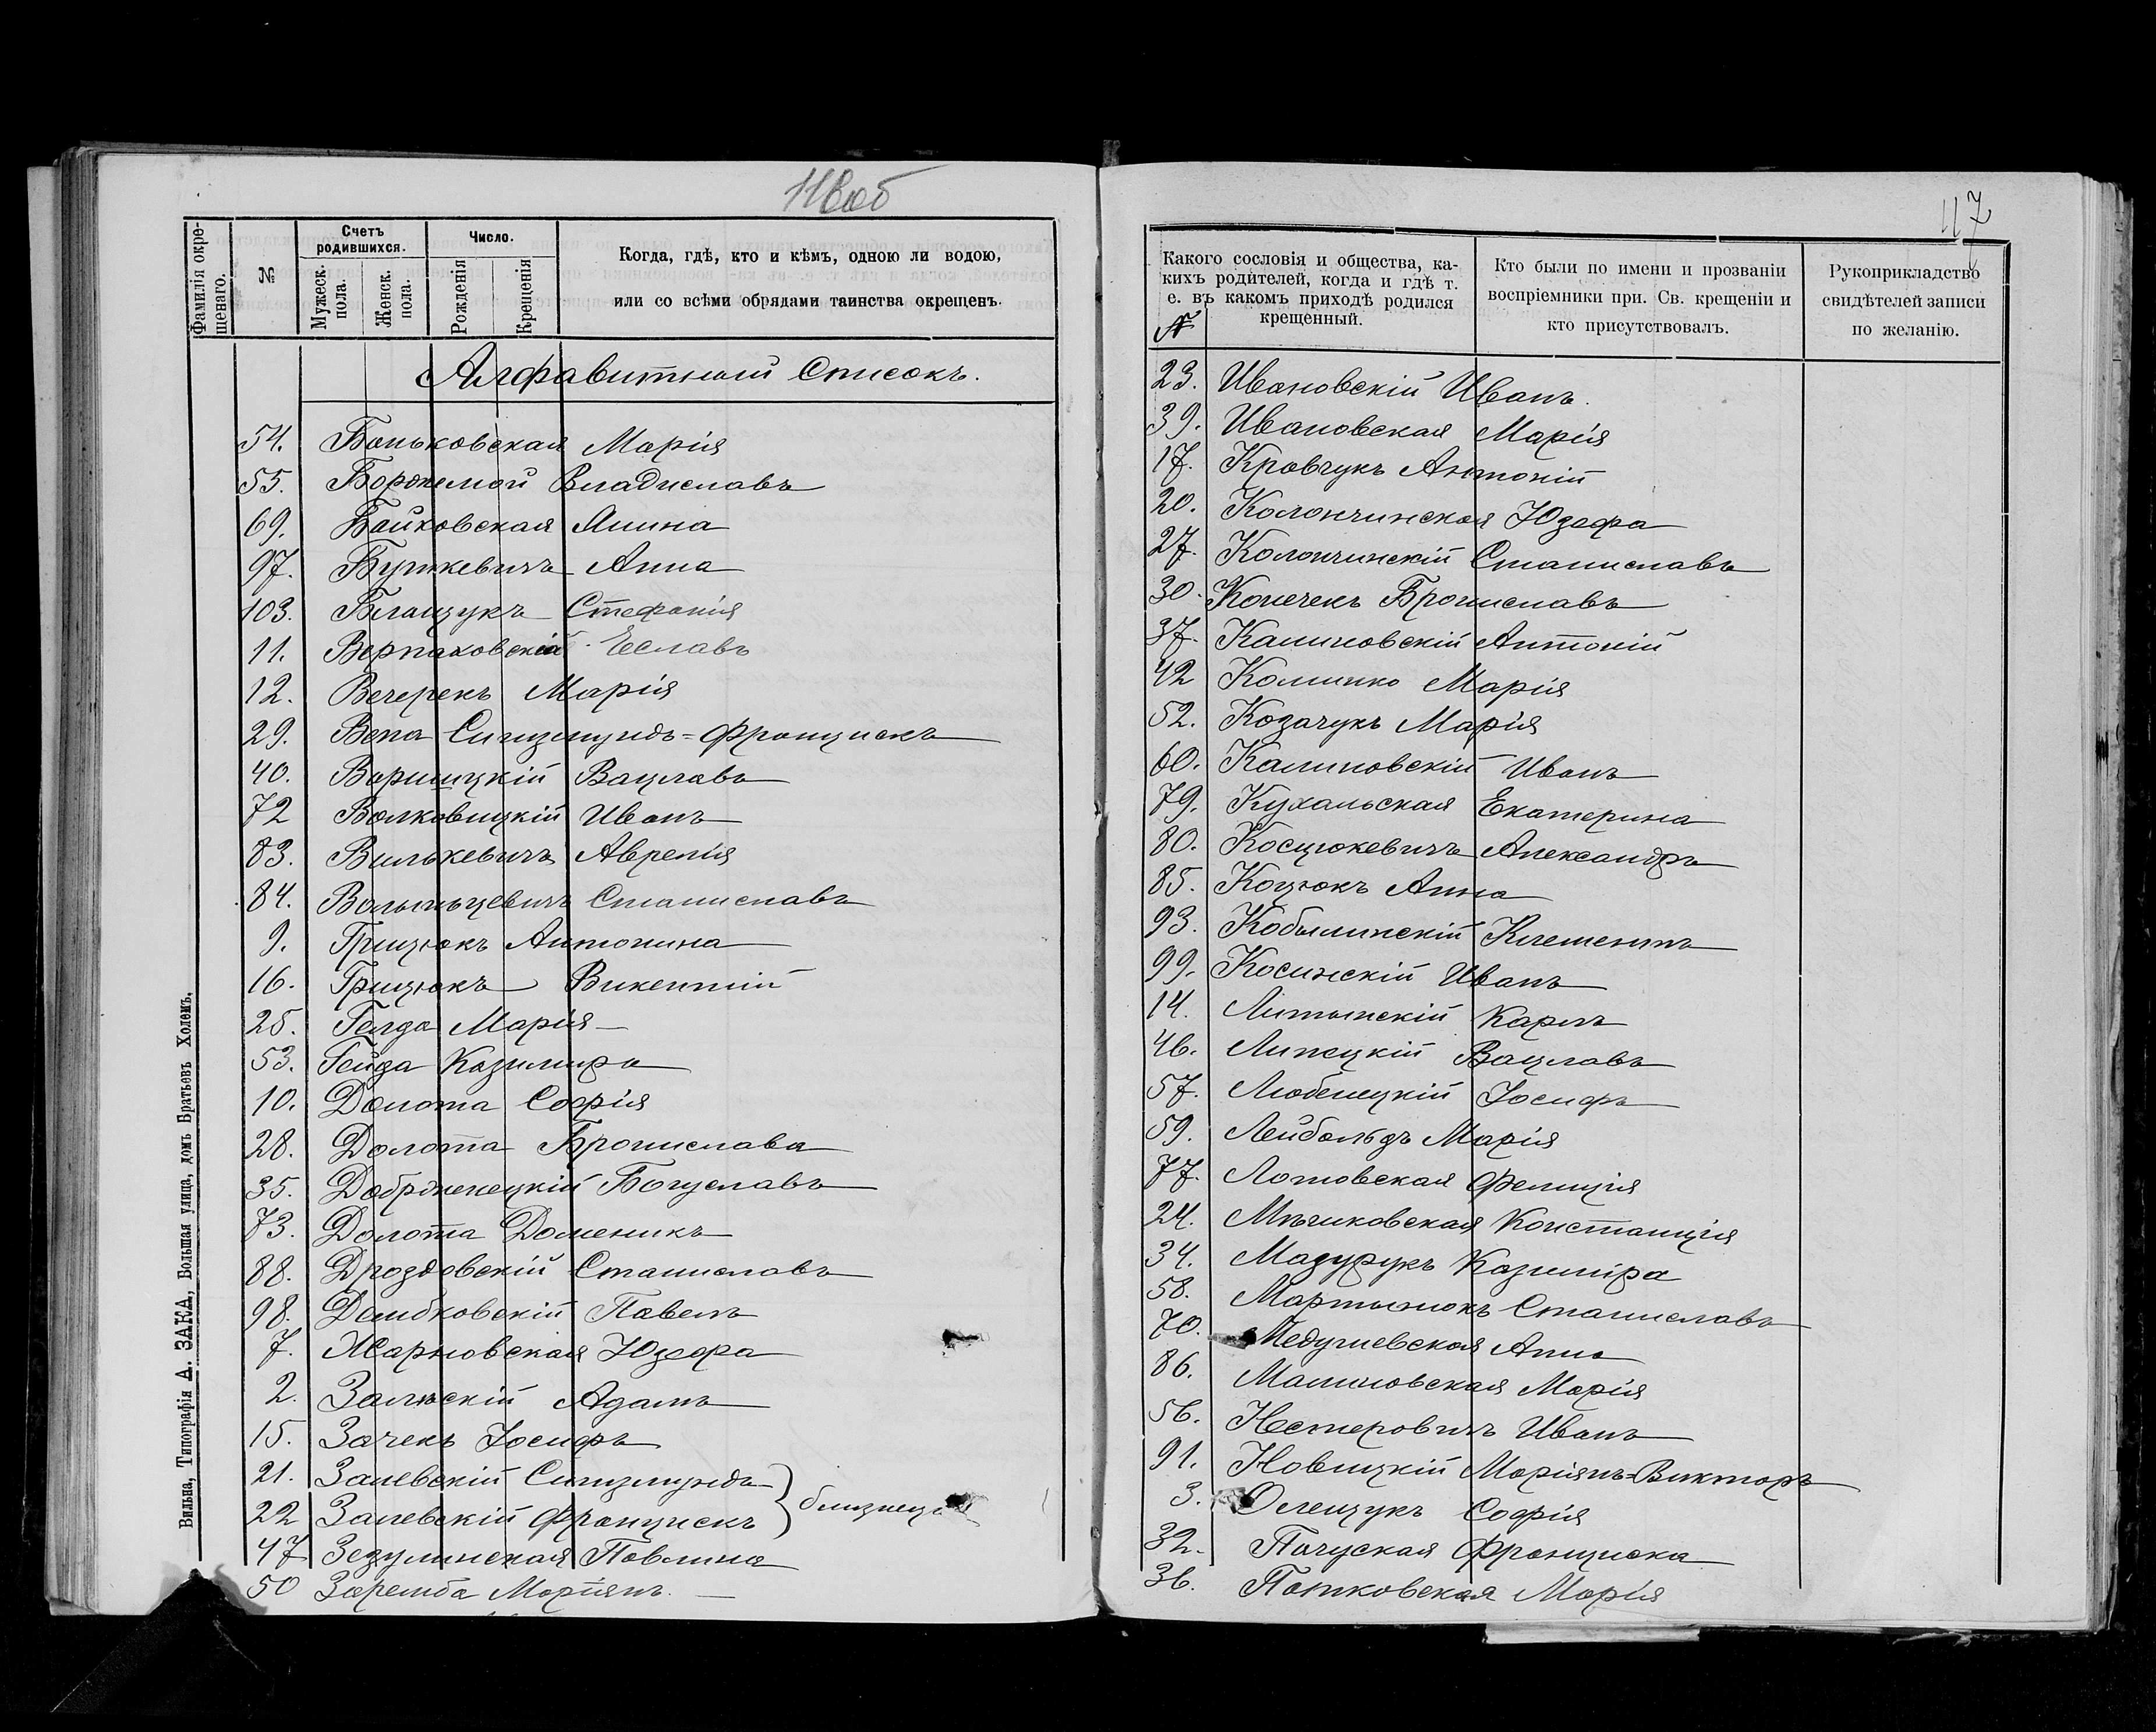 47
Фамилія окре-
щенаго.
№
Счетъ
родившихся.
Мужеск.
пола.
Женск.
пола.
Число.
Рожденія
Крещенія
Когда, гдѣ, кто и кѣмъ, одною ли водою,
или со всѣми обрядами таинства окрещенъ.
Алфавитный Списокъ.
54. Боньковская Марія
55. Боржемой Владиславъ
69. Байковская Янина
97. Буткевичъ Анна
103. Блащукъ Стефанія
11. Верпаховскій Чеславъ
12. Вечерекъ Марія
29. Вепа Сигизмундъ=Францискъ
40. Вариницкій Вацлавъ
72 Волковицкій Иванъ
83. Вилькевичъ Аврелія
84. Волынцевичъ Станиславъ
9. Грицюкъ Антонина
16. Грицюкъ Викентій
25. Гелда Марія
53. Гейда Казимира
10. Долота Софія
28. Долота Бронислава
35. Добрженецкій Богуславъ
73. Долота Доменикъ
88. Дроздовскій Станиславъ
98. Дембковскій Павелъ
7. Жарновская Юзефа
2. Залюскій Адамъ
15. Зачекъ Іосифъ
21. Залевскій Сигизмундъ
22 Залевскій Францискъ } близнецы
47 Зезулинская Павлина
50 Заремба Маріянъ.
Вильна, Типографія А. ЗАКА, Большая улица, домъ Братьевъ Холемъ.
Какого сословія и общества, ка-
кихъ родителей, когда и гдѣ т.
е. въ какомъ приходѣ родился
крещенный.
№
Кто были по имени и прозванію
воспріемники при. Св. крещеніи и
кто присутствовалъ.
Рукоприкладство
свидѣтелей записи
по желанію.
23. Ивановскій Иванъ.
39. Ивановская Марія
17. Кравчукъ Антоній
20. Колончинская Юзефа
27. Колончинскій Станиславъ
30. Конечекъ Брониславъ
37. Калиновскій Антоній
42 Коминко Марія
52. Козачукъ Марія
60. Калиновскій Иванъ
79. Кухальская Екатерина
80. Косцюкевичъ Александръ
85. Коцюкъ Анна
93. Кобылинскій Клементъ
99. Косинскій Иванъ
14. Литынскій Карлъ
46. Липецкій Вацлавъ
57. Любенецкій Іосифъ
59. Лейбольдъ Марія
77. Лотовская Фелиція
24. Мѣчиковская Констанція
34. Мазурукъ Казиміра
58. Мартынюкъ Станиславъ
70. Медуневская Анна
86. Малиновская Марія
56. Нестеровичъ Иванъ
91. Новицкій Маріянъ=Викторъ
3. Олещукъ Софія
32. Пагуская Франциска
36. Патковская Марія